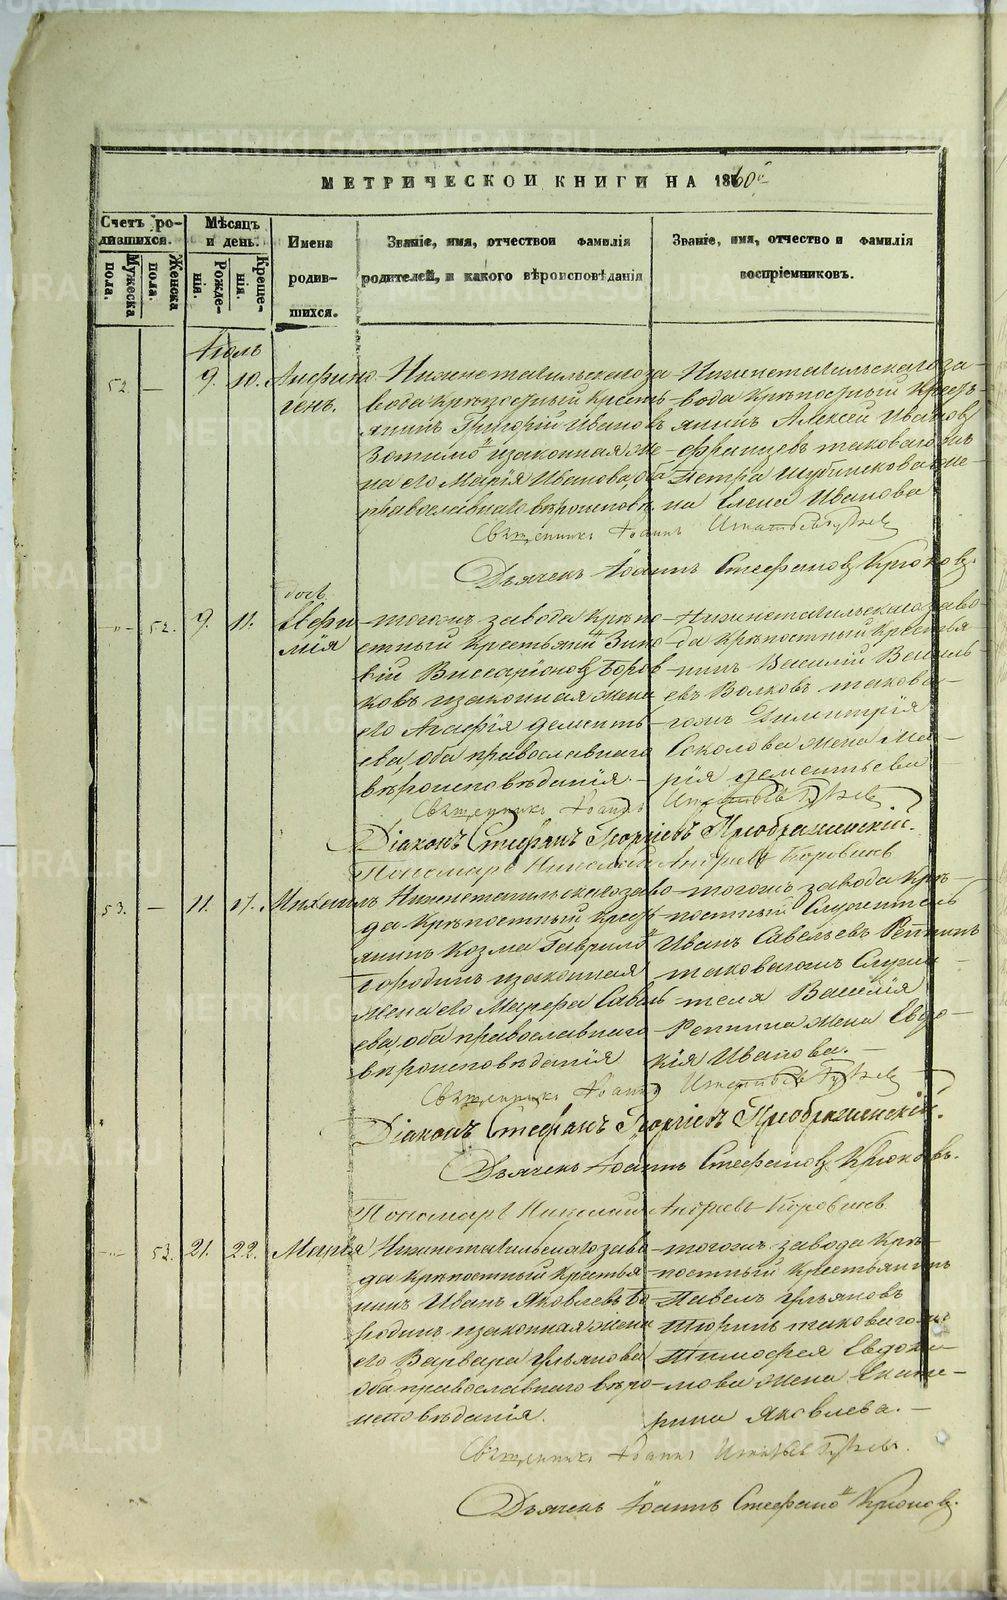 МЕТРИЧЕСКОЙ КНИГИ НА 1860й
Счетъ ро-
дившихся.
Мужеска
пола.
Женска
пола.
Мѣсяцъ
и день.
Рожде-
нія.
Креще-
нія.
Имена
родив-
шихся.
Званіе, имя, отчество и фамилія
родителей, и какого вѣроисповѣданія
Званіе, имя, отчество и фамилія
воспріемниковъ.
Іюль
52. — 9. 10. Анфино-
генъ.
Нижнетагильскаго за-
вода крѣпостный кресть-
янинъ Григорій Ивановъ
изаконная же-
на его Марія Иванова, оба
православнаго вѣроисповѣд.
Нижнетагильскаго за-
вода Крѣпостный Кресть
янинъ Алексей Ивановъ
таковагожъ
Петра же-
на Елена Иванова
Священникъ Іоаннъ
Дьячекъ Іоаннъ Стефановъ Крюковъ.
-"- 52. 9. 11. Евфи-
мія
тогожъ завода Крѣпо-
стный Крестьянинъ Зино-
вій Виссаріоновъ Боров-
ковъ изаконная жена
его Агафія Дементь-
ева, оба православнаго
вѣроисповѣданія. —
Нижнетагильскаго заво-
да Крѣпостный Крестья
нинъ Василій Василь-
евъ Волковъ такова-
гожъ Димитрія
Соколова жена Ма-
рія Дементьева —
Священникъ Іоаннъ
Діаконъ Стефанъ Георгіевъ Преображенскій.
Пономарь Николай Андреевъ Коровинъ
53. — 11. 17. Михаилъ
Нижнетагильскаго заво-
да Крѣпостный Кресть
янинъ Козма Гаврило
Бородинъ изаконная
жена его Марфа Савель
ева, оба православнаго
вѣроисповѣданія
тогожъ завода Крѣ-
постный Служитель
Иванъ Савельевъ Рѣппинъ
таковагожъ Служи-
теля Василія
Реппина жена Евдо-
кія Иванова. —
Священникъ Іоаннъ
Діаконъ Стефанъ Георгіевъ Преображенскій.
Дьячекъ Іоаннъ Стефановъ Крюковъ.
Пономарь Николай Андреевъ Коровинъ
-"- 53. 21. 22. Марія
Нижнетагильскаго заво-
да крѣпостный Крестья
нинъ Иванъ Яковлевъ Бо
родинъ изаконная жена
его Варвара Ульянова
оба православнаго вѣро-
исповѣданія.
тогожъ завода Крѣ-
постный Крестьянинъ
Павелъ Ульяновъ
таковагожъ
Тимофея Евдоки-
мова жена Екате-
рина Яковлева. —
Священникъ Іоаннъ
Дьячекъ Іоаннъ Стефано Крюковъ.